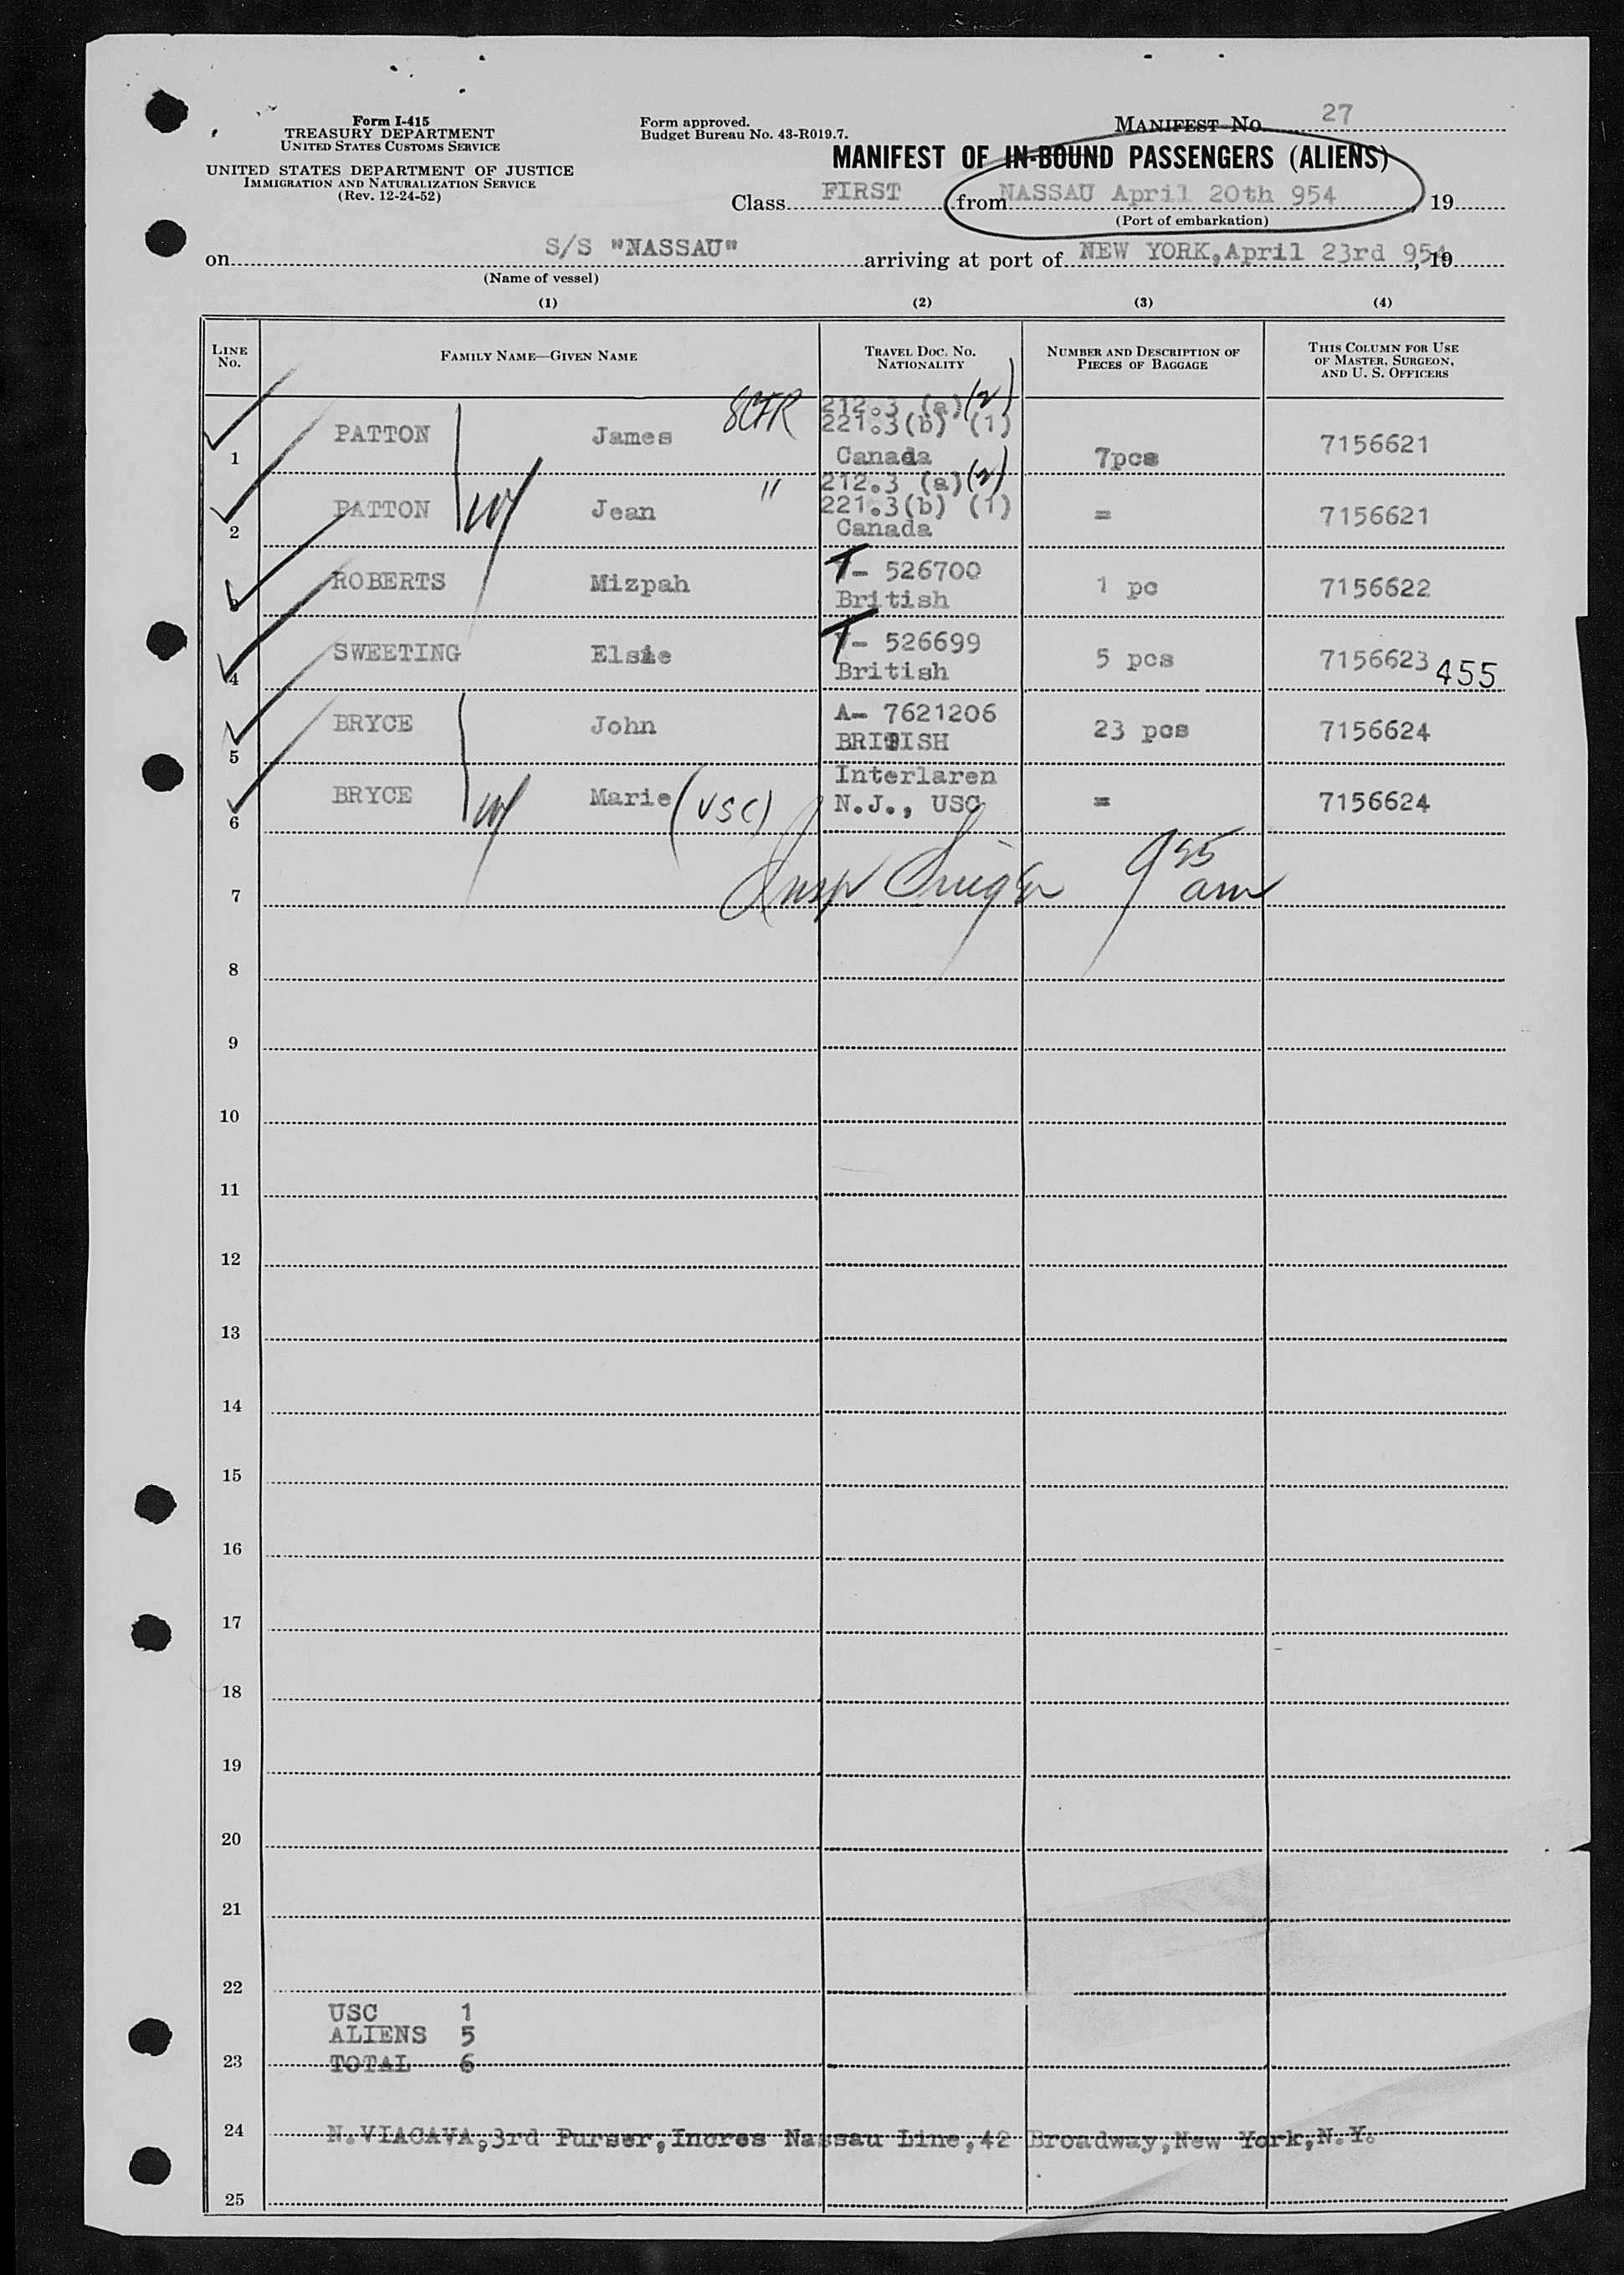 Form I-415
TREASURY DEPARTMENT
UNITED STATES CUSTOMS SERVICE
UNITED STATES DEPARTMENT OF JUSTICE
IMMIGRATION AND NATURALIZATION SERVICE
(Rev. 12-24-52)
Form approved.
Budget Bureau No. 43-R019.7.
MANIFEST NO. 27
MANIFEST OF IN-BOUND PASSENGERS (ALIENS)
Class FIRST from NASSAU April 20th 954, 19
(Port of embarkation)
on S/S "NASSAU" arriving at port of NEW YORK, April 23rd 954, 19
(Name of vessel)
(1) (2) (3) (4)
LINE NO. FAMILY NAME—GIVEN NAME TRAVEL DOC. NO. NATIONALITY NUMBER AND DESCRIPTION OF PIECES OF BAGGAGE THIS COLUMN FOR USE OF MASTER, SURGEON, AND U. S. OFFICERS
8CFR 212.3 (a)(2)
221.3(b) (1)
1 PATTON James Canada 7pcs 7156621
" 212.3 (a)(2)
221.3(b) (1)
2 PATTON Jean Canada = 7156621
T- 526700
3 ROBERTS Mizpah British 1 pc 7156622
T- 526699
4 SWEETING Elsie British 5 pcs 7156623 455
A- 7621206
5 BRYCE John BRITISH 23 pcs 7156624
Interlaren
6 BRYCE Marie (USC) N.J., USC = 7156624
7 Insp 9 55 am
8
9
10
11
12
13
14
15
16
17
18
19
20
21
22
USC 1
ALIENS 5
23 TOTAL 6
24 N.VIACAVA,3rd Purser,Incres Nassau Line,42 Broadway,New York,N.Y.
25